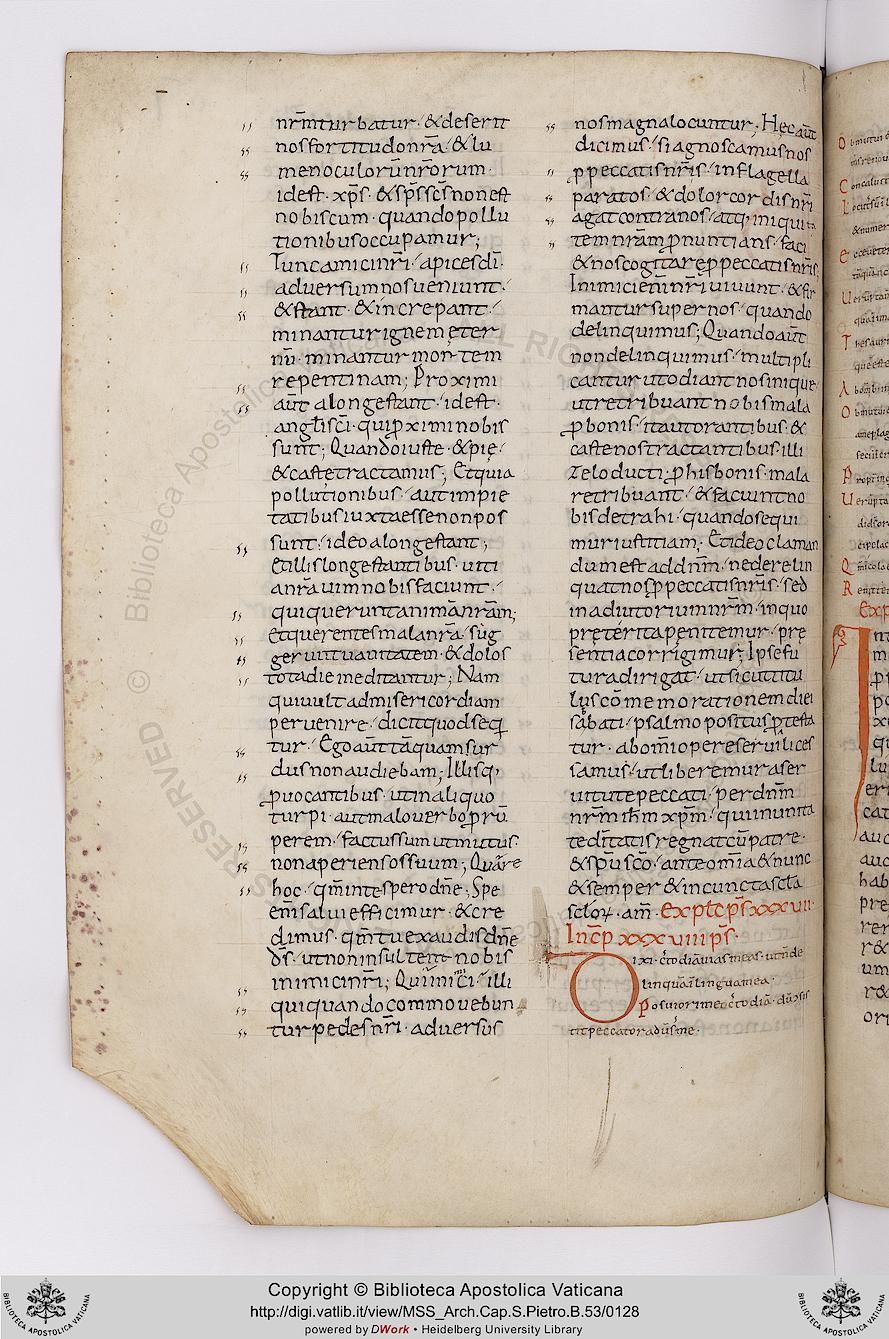 nr̄m turbatur · & deserit
nos fortitudo nr̄a · & lu
men oculorū nr̄orum ·
id est · xp̄s · & sp̄s sc̄s non est
nobiscum · quando pollu
tionibus occupamur ;
Tunc amici nr̄i · apices dī ·
adversum nos veniunt ·
& stant · & increpant ·
minantur ignem ęter
nū · minantur mortem
repentinam ; Proximi
aūt a longe stant · id est ·
angłi scī · qui ꝓximi nobis
sunt ; Quando iuste · & pię ·
& castę tractamus ; Et quia
pollutionibus · aut impie
tatibus iuxta esse non pos
sunt · ideo a longe stant ;
Et illis longe stantibus · viti
a nr̄a vim nobis faciunt ·
qui querunt animā nr̄am ;
Et querentes mala nr̄a · sug
gerunt vanitatem · & dolos
tota die meditantur ; Nam
qui vult ad misericordiam
pervenire · dicit quod seq̄
tur · Ego aūt tāquam sur
dus non audiebam ; Illisq;
ꝓvocantibus · ut in aliquo
turpi · aut malo verbo ꝓrū
perem · factus sum ut mutus
non aperiens os suum ; Quare
hoc · qm̄ in te spero dn̄e ; Spe
em̄ salvi efficimur · & cre
dimus · qm̄ tu exaudis dn̄e
d̄s · ut non insultent nobis
inimici nr̄i ; Qui inimici · illi
qui quando commovebun
tur pedes nr̄i · adversus
nos magna locuntur ; Hęc aūt
dicimus · si agnoscamus nos
ꝓ peccatis nr̄is · in flagella
paratos · & dolor cordis nr̄i
agat contra nos · atq; iniquita
tem nr̄am ꝓnuntians · faci
& nos cogitare ꝓ peccatis nr̄is ;
Inimici eni nr̄i vivunt · & fir
mantur super nos · quando
delinquimus ; Quando aūt
non delinquimus · multipli
cantur ut odiant nos inique
ut retribuant nobis mala
ꝓ bonis · ita ut orantibus · &
caste nos tractantibus · illi
zelo ducti · ꝓ his bonis · mala
retribuant · & faciunt no
bis detrahi · quando sequi
mur iustitiam ; Et ideo claman
dum est ad dn̄m · ne derelin
quat nos ꝓ peccatis nr̄is · sed
in adiutorium nr̄m · in quo
pręterita penitemur · prę
sentia corrigimur ; Ipse fu
tura dirigat · ut sicut titu
lus cōmemorationem diei
sabbati · psalmo positus ꝓtesta
tur · ab om̄i opere servili ces
samus · ut liberemur a ser
vitute peccati · per dn̄m
nr̄m ih̄m xp̄m · qui in unita
te dītatis regnat cū patre ·
& sp̄u sc̄o · ante om̄ia & nunc
& semper & in cuncta sc̄la
sc̄lorꝝ · am̄ · Explc̄ ps̄ xxxvii ·
Incp̄ xxxviiii ps̄ ·
Dixi · c̄todiā vias meas · ut n̄ de
linquā ī lingua mea ·
Posui ori meo c̄todiā · dū c̄sis
tit peccator adūs me ·
Copyright © Biblioteca Apostolica Vaticana
http://digi.vatlib.it/view/MSS_Arch.Cap.S.Pietro.B.53/0128
powered by DWork • Heidelberg University Library
BIBLIOTECA APOSTOLICA VATICANA
BIBLIOTECA APOSTOLICA VATICANA